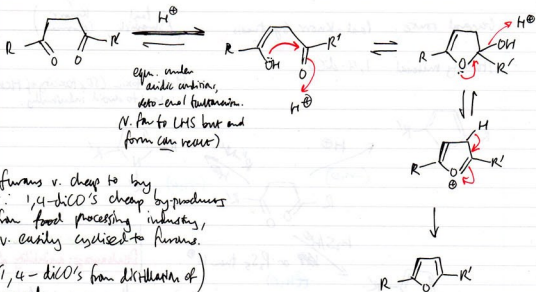 H⊕
R
O
O
R'
R
ÖH
R'
O
H⊕
R
O
OH
R'
H⊕
eqm. under
acidic conditions,
keto-enol tautomerism.
(v. far to LHS but enol
form can react)
H
R
O
⊕
R'
furans v. cheap to buy
∵ 1,4-diCO's cheap by-products
from food processing industry,
v. easily cyclised to furans.
1,4-diCO's from distillation of)
R
O
R'